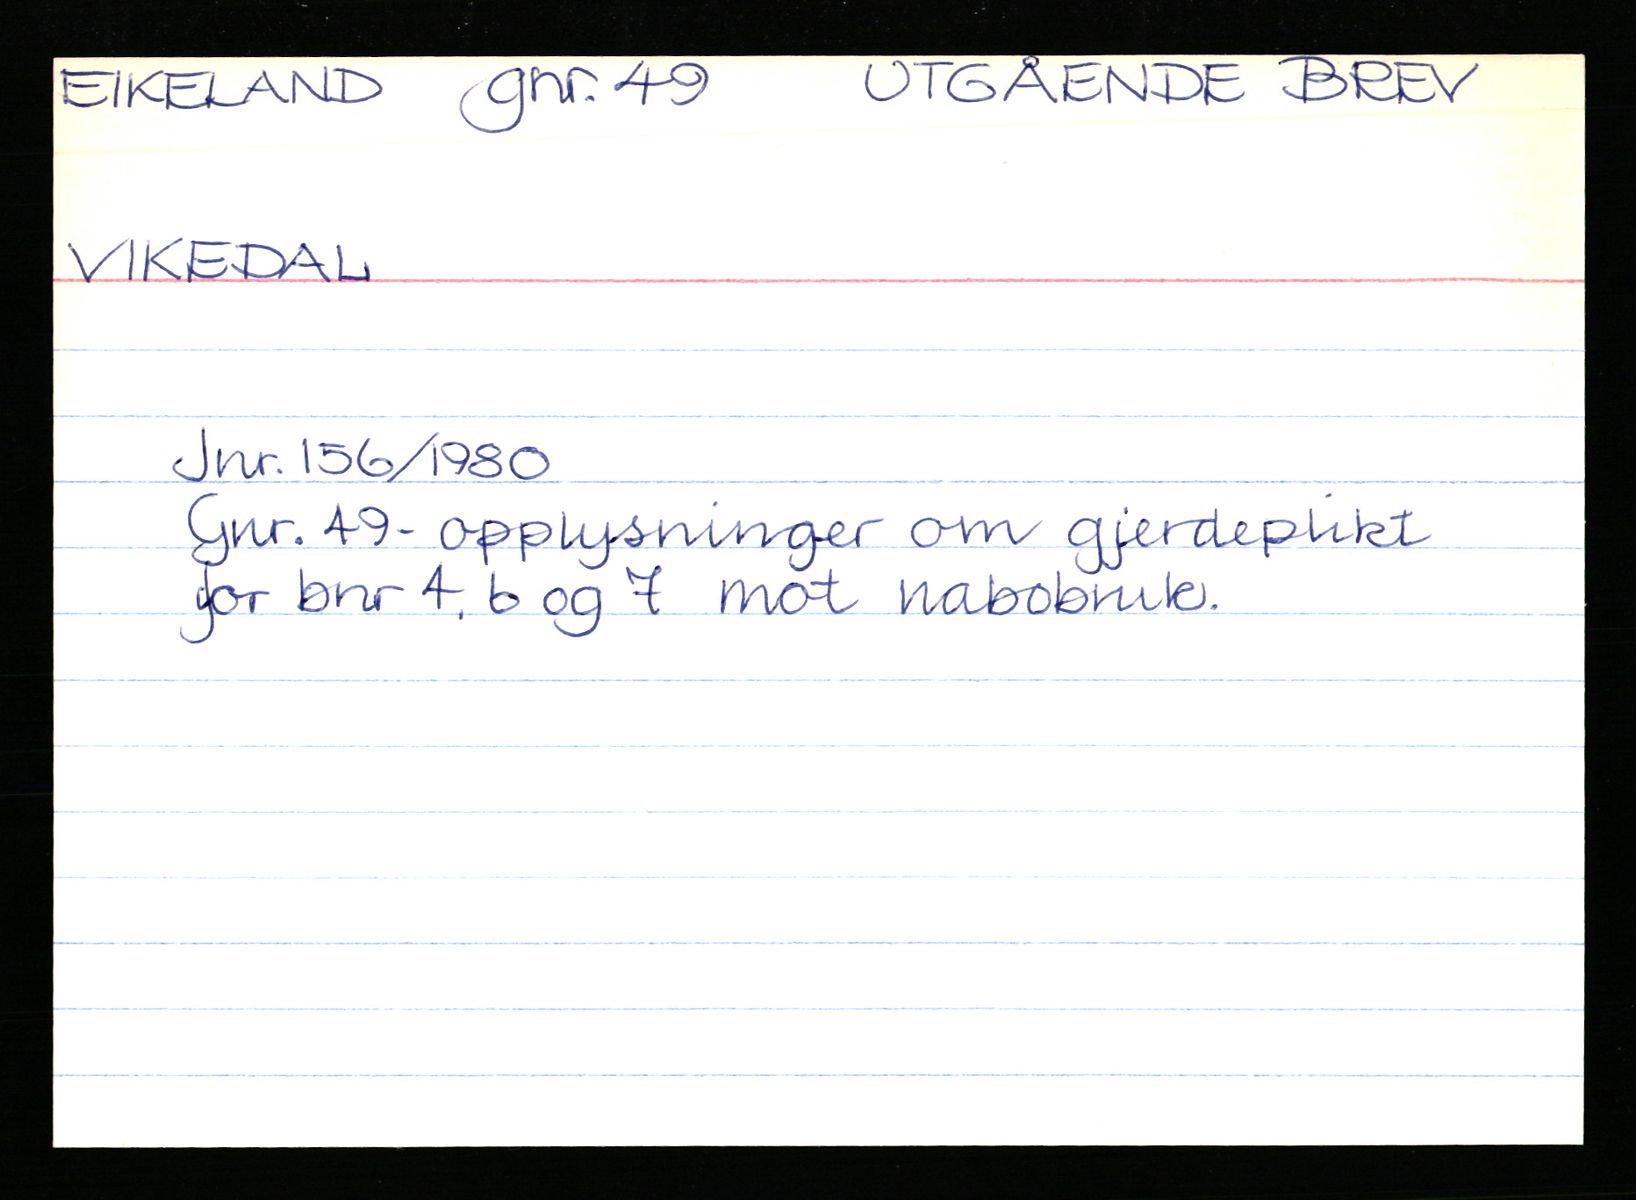 EIKELAND gnr. 49 UTGÅENDE BREV
VIKEDAL
Jnr. 156/1980
Gnr. 49 - opplysninger om gjerdeplikt
for bnr 4, 6 og 7 mot nabobruk.